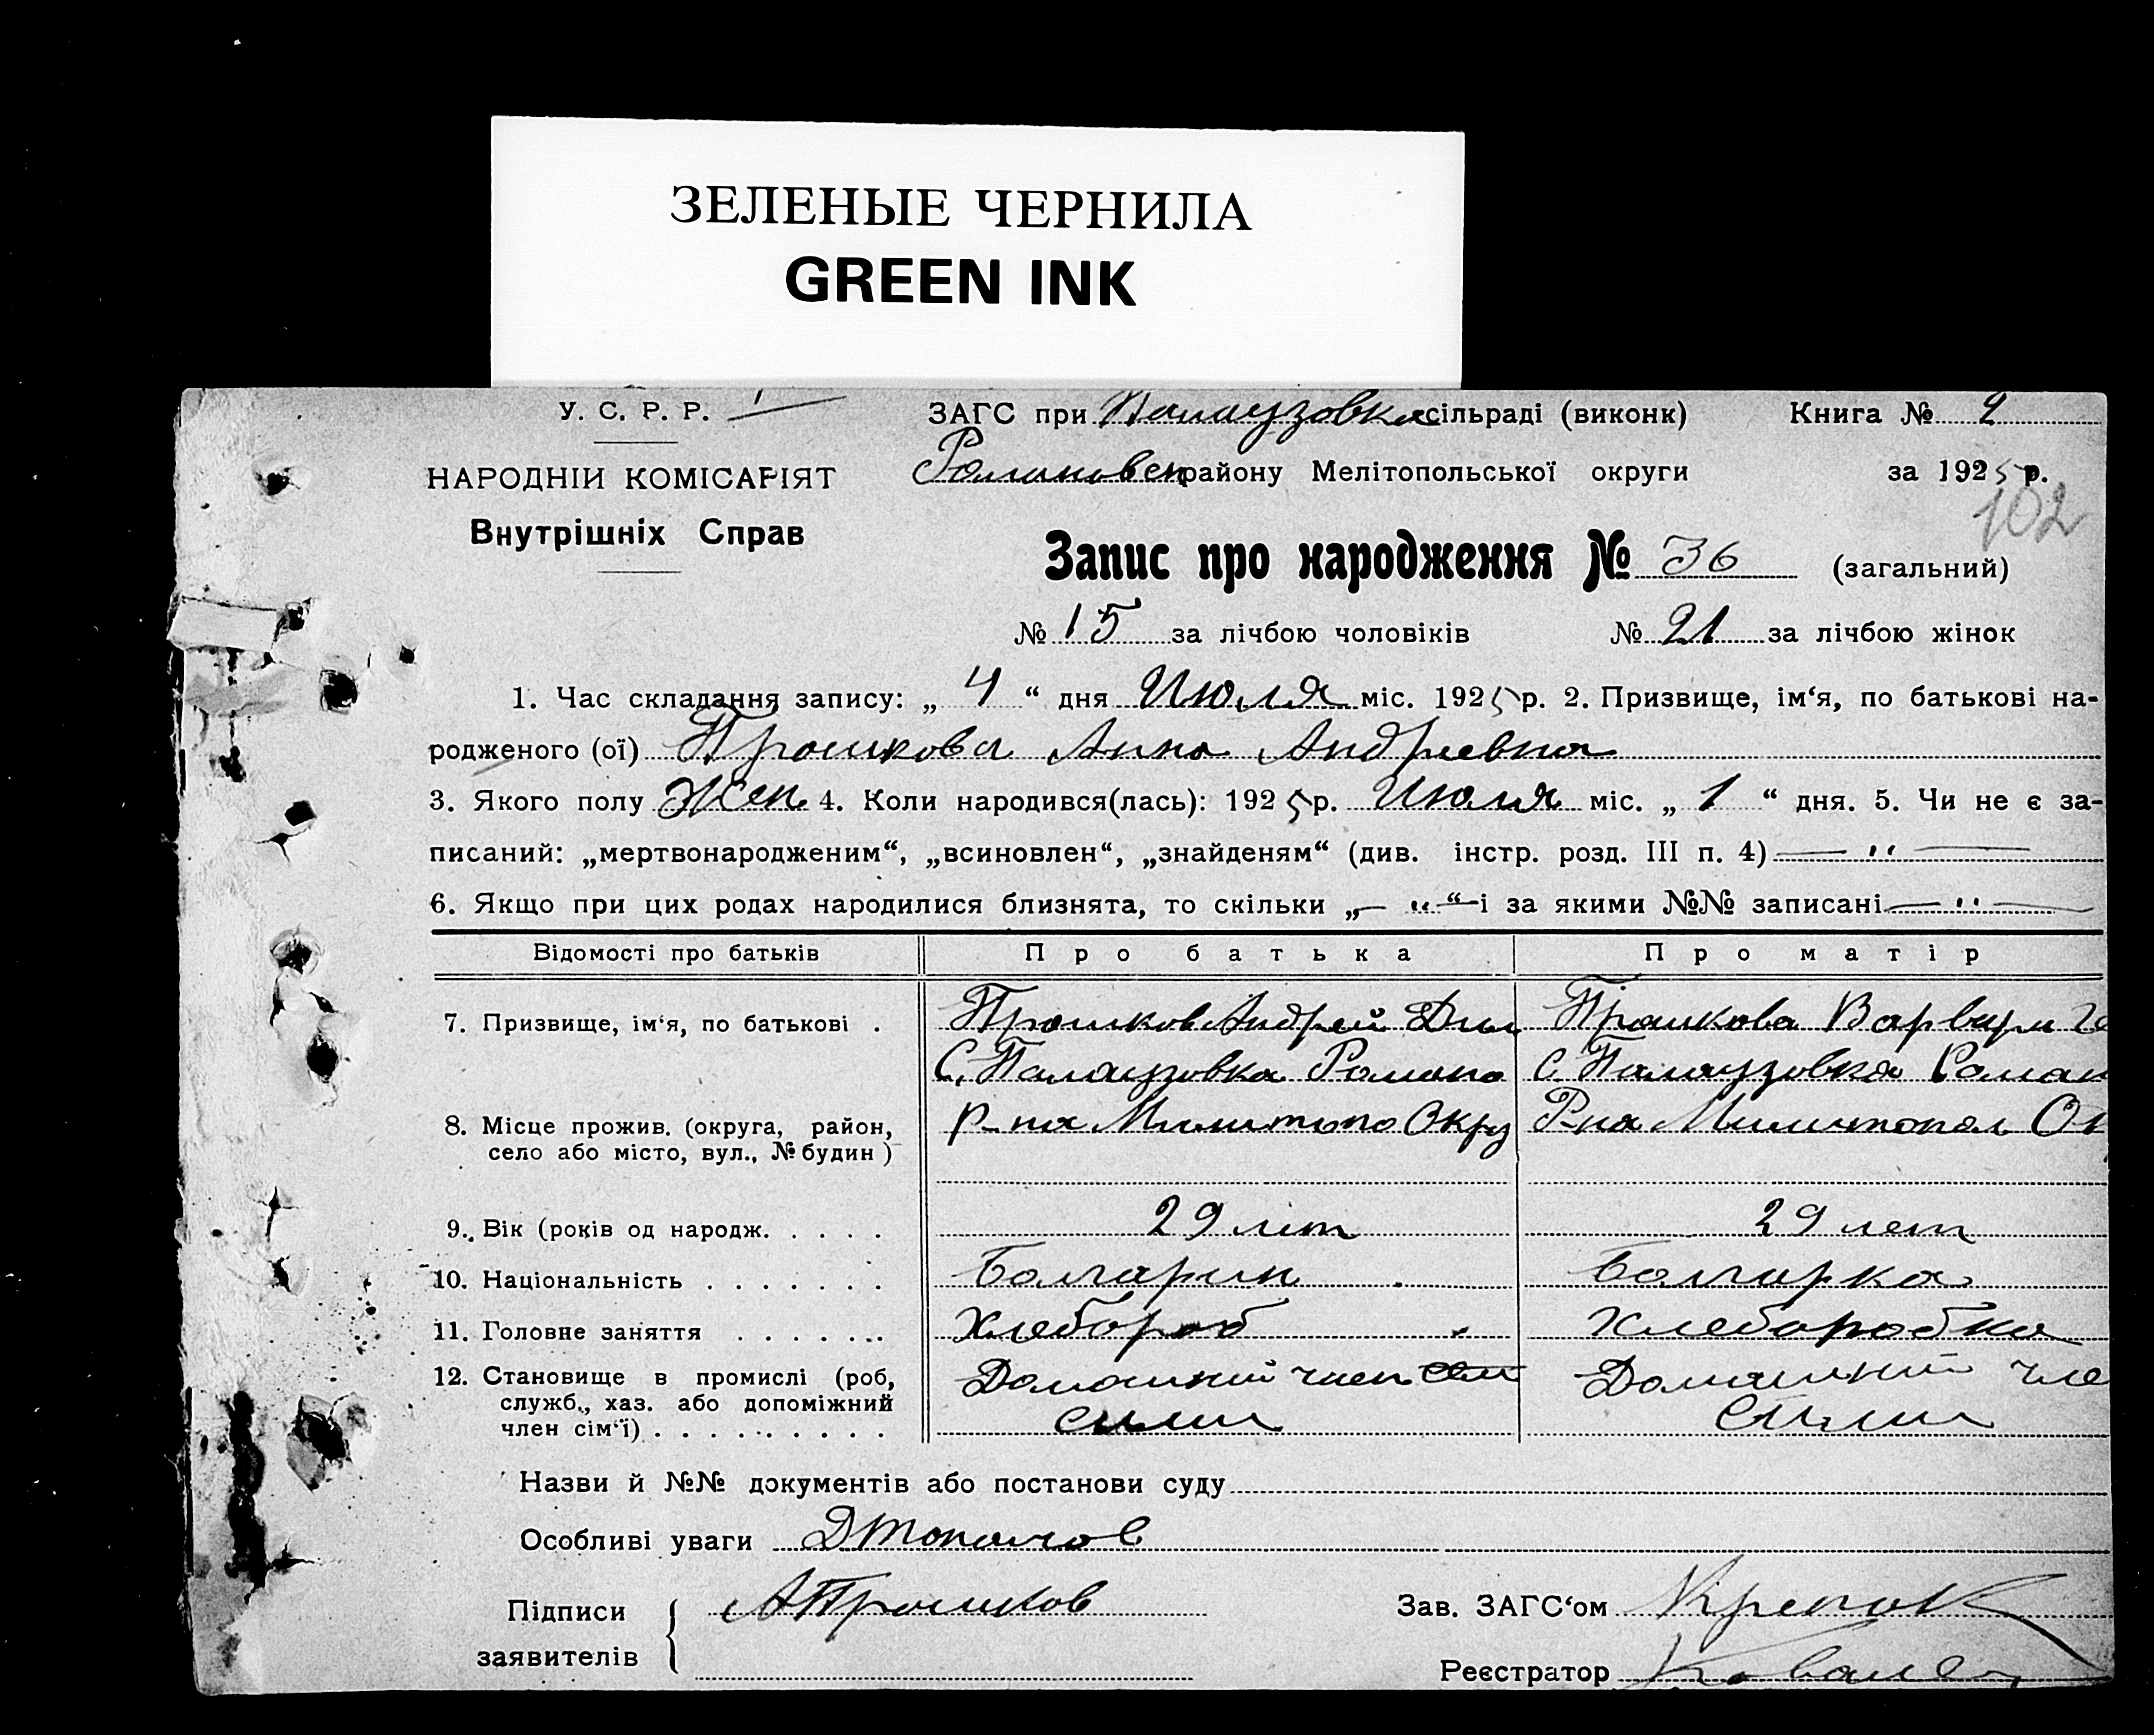 ЗЕЛЕНЫЕ ЧЕРНИЛА
GREEN INK
У. С. Р. Р.
ЗАГС при Палаузовка сільраді (виконк) Книга № 2
НАРОДНІЙ КОМІСАРІЯТ
Романовск району Мелітопольської округи за 1925 р.
102
Внутрішніх Справ
Запис про народження № 36 (загальний)
№ 15 за лічбою чоловіків № 21 за лічбою жінок
1. Час складання запису: „ 4 “ дня Июля міс. 1925 р. 2. Призвище, ім‘я, по батькові на-
родженого (ої) Прошкова Анна Андревна
3. Якого полу Жен. 4. Коли народився(лась): 1925 р. Июля міс. „ 1 “ дня. 5. Чи не є за-
писаний: „мертвонародженим“, „всиновлен“, „знайденям“ (див. інстр. розд. III п. 4) — " —
6. Якщо при цих родах народилися близнята, то скільки „— " “— і за якими №№ записані — " —
Відомості про батьків Про батька Про матір
7. Призвище, ім‘я, по батькові . Прошков Андрей Дми Прошкова Варвара Ге
С. Палаузовка Романо С. Палаузовка Роман
8. Місце прожив. (округа, район, р-на Мелитопо Окру Р-на Мелитопол Ок
село або місто, вул., № будин )
9. Вік (років од народж. . . . . 29 лет 29 лет
10. Національність . . . . . . . Болгарин Болгарка
11. Головне заняття . . . . . . . Хлебороб Хлеборобка
12. Становище в промислі (роб, Домашний член Домашний чле
служб., хаз. або допоміжний семи семи
член сім‘ї) . . . . . . . . . .
Назви й №№ документів або постанови суду
Особливі уваги ДТопалов
Підписи АПрошков Зав. ЗАГС‘ом
заявителів
Реєстратор